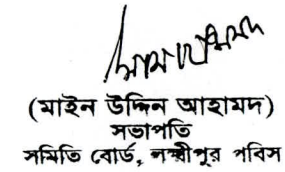 (মাইন উদ্দিন আহামদ)
সভাপতি
সমিতি বোর্ড, লক্ষ্মীপুর পবিস